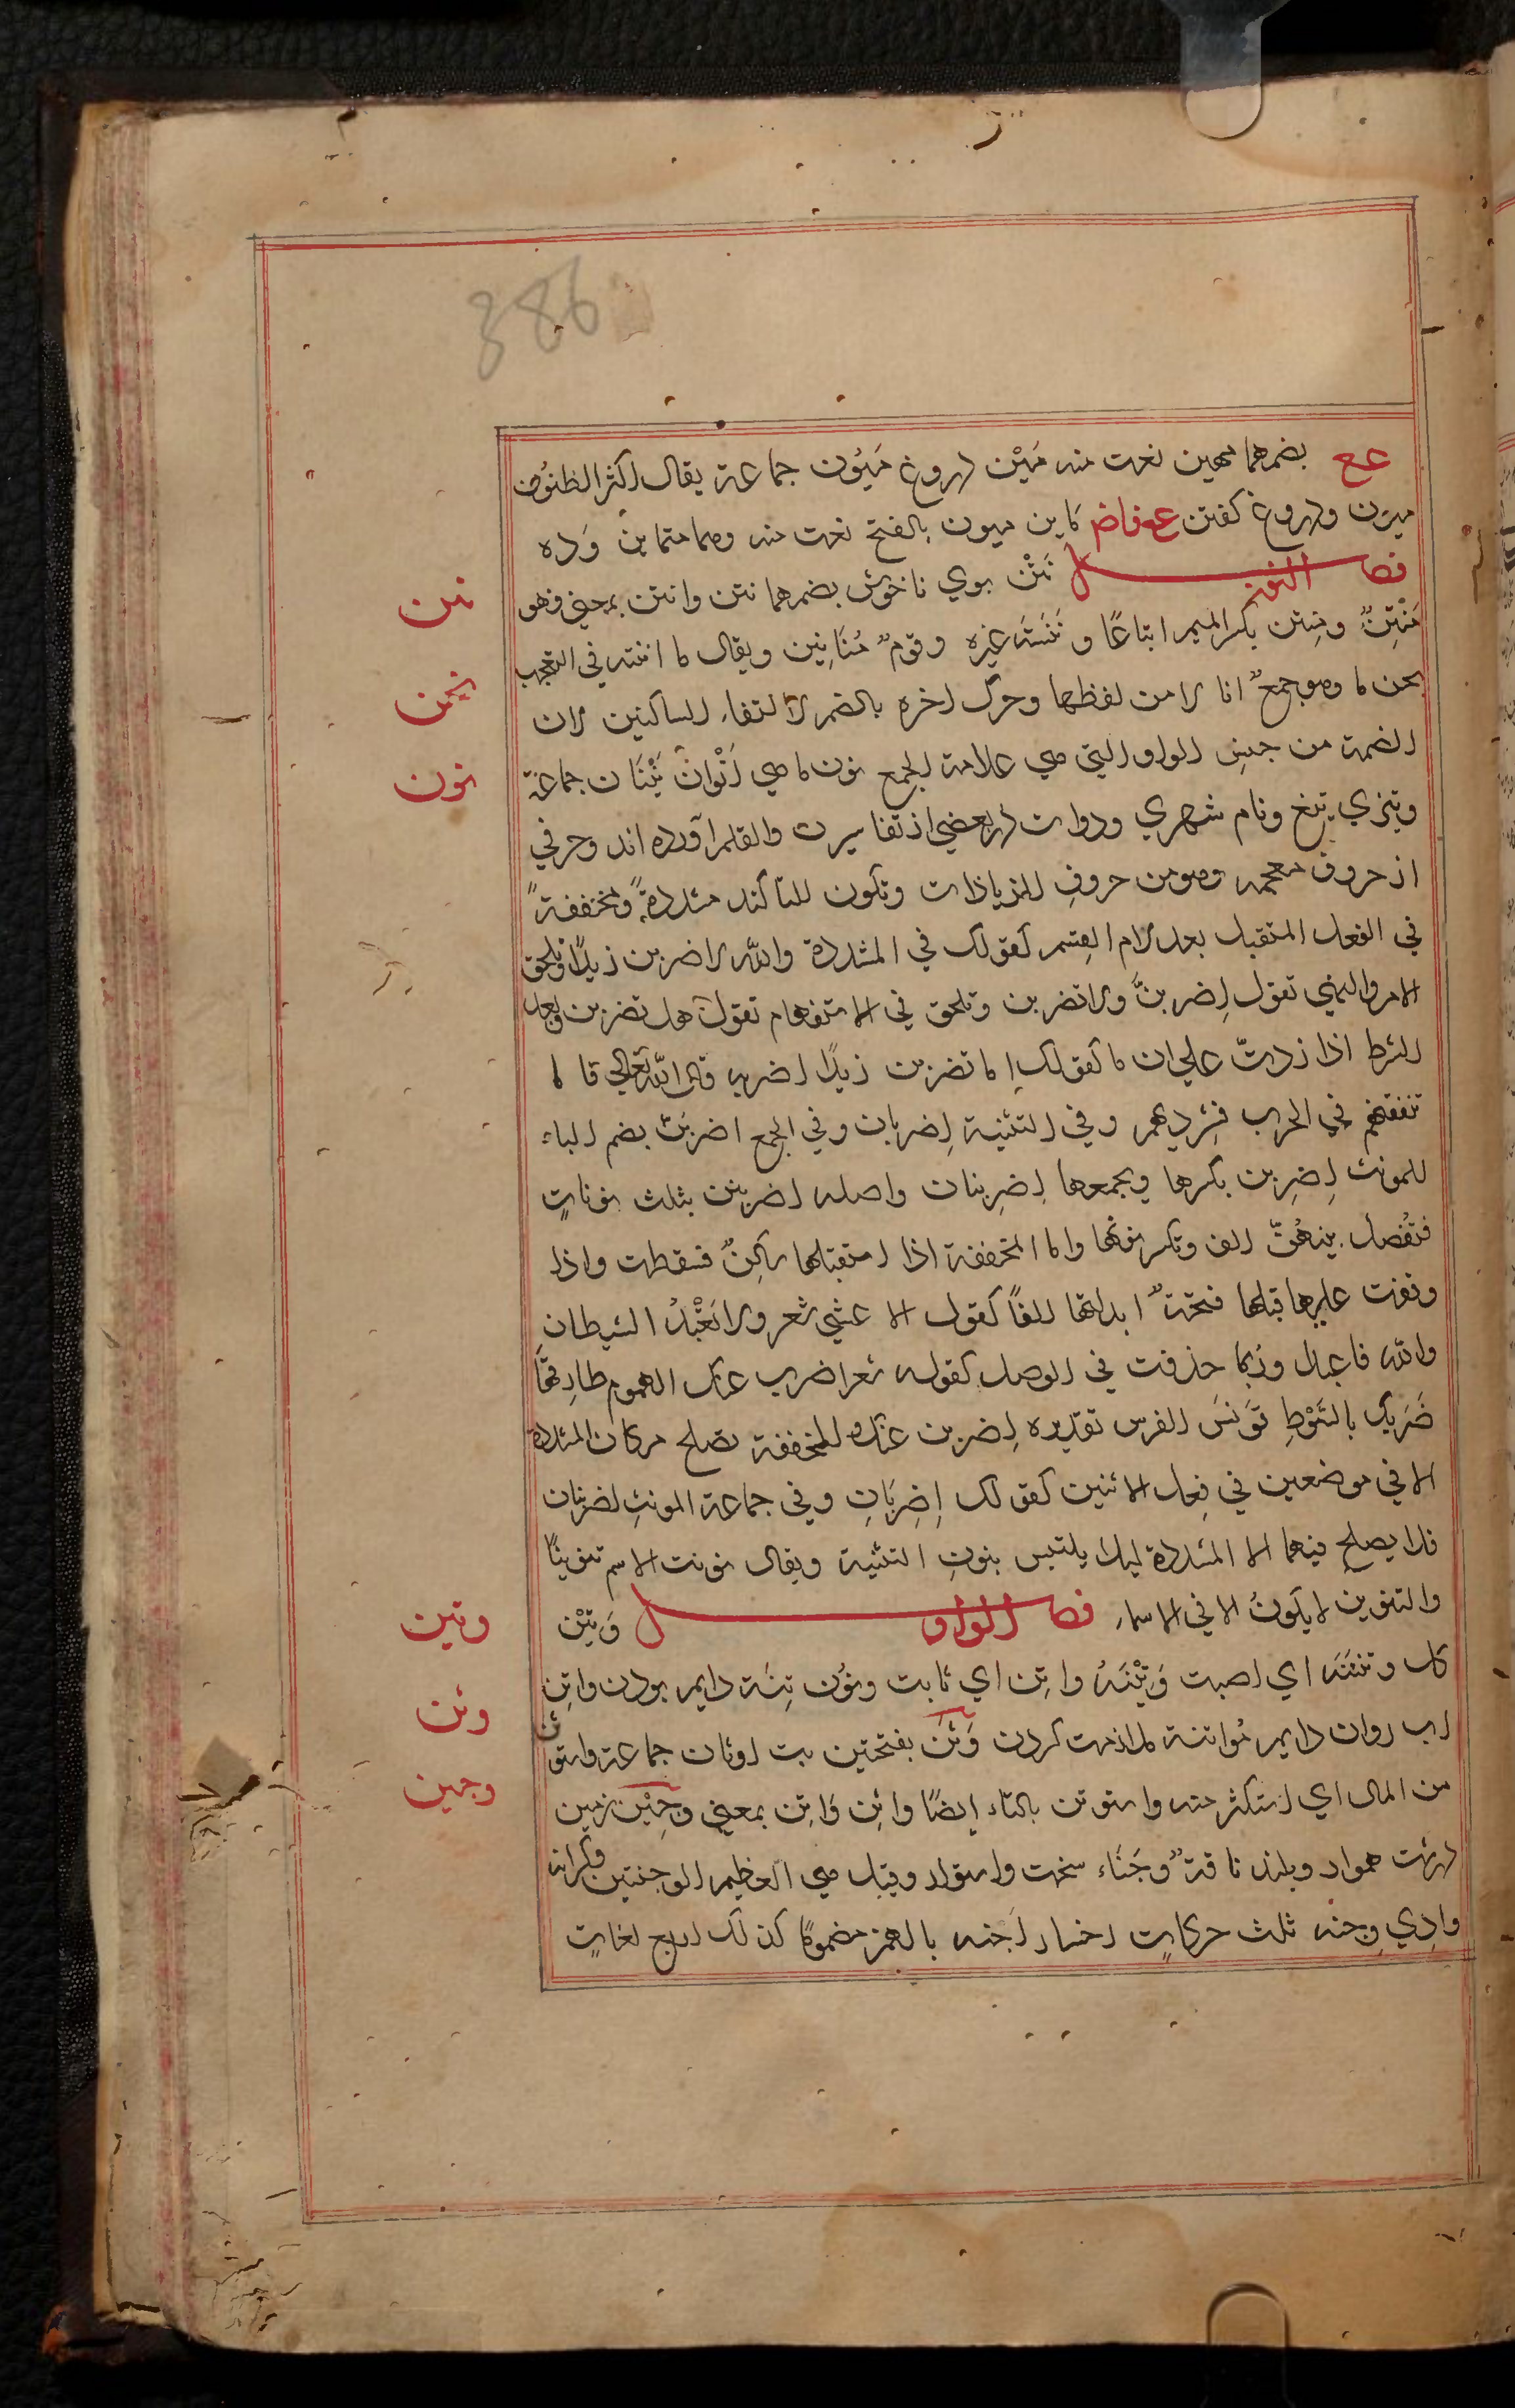 386
عع بضمهما مهين نعت منه مَيْن دروغ مَيُون جماعة يقال اكثر الظنُون
ميون ودروغ كفتن عع فاض كاين ميون بالفتح نعت منه وهما متماين وَده
فصل النون نَتْن بوي ناخوش بضمهما نتن وانتن بمعني فهو
مُنْتِنٌ ومِنِتن بكسر الميم اتباعًا ونَتَنَه غيره وقومٌ مَنَاتِين ويقال ما انتنه في التعجب
نحن ما وهو جمعٌ انا لا من لفظها وحرك اخره بالضم لالتقاء الساكنين لان
الضمة من جنس الواو التي هي علامة الجمع نون ماهي اَنْوان نِيْنَان جماعة
وتيزي تيغ ونام شهري ودوات در بعضي از تفاسير ن والقلم آورده اند وحرفي
از حروف معجمه وهو من حروف الزيادات وتكون للتاكيد مشددةً ومخففةً
في الفعل المستقبل بعد لام القسم كقولك في المشددة والله لاضربن زيدًا وتلحق
الامر والنهي تقول اِضربنّ ولا تضربن وتلحق في الاستفهام تقول هل تضربن وبعد
الشرط اذا زدتّ علي ان ما كقولك اِما تضربن زيدًا اضربه قال الله تعالي فاما
تثقفنهم في الحرب فشرد بهم وفي التثنية اِضربان وفي الجمع اضربُنّ بضم الباء
للمونث اِضرِبن بكسرها وبجمعها اِضرِبنان واصله اضربنن بثلث نوناتٍ
فتُفصل بينهُنّ الف وتكسر نونها واما المخففة اذا استقبلها ساكنٌ فسقطت واذا
وقفت عليها قبلها فتحةٌ ابدلتها الفًا كقول الاعشي شعر ولا تَعْبُدُ الشيطان
والله فاعبدا وربما حذفت في الوصل كقوله شعر اضرب عنك الهموم طارقها
ضَربك بالسَّوْطِ قَونَسَ الفرس تقديره اِضربن عنك والمخففة تصلح مركان المشددة
الا في موضعين في فِعل الاثنين كقولك اِضرِبَانِ وفي جماعة المونثِ اضربنان
فلا يصلح فيهما الا المشددة ليلا يلتبس بنونِ التثنية ويقال نونت الاسم تنوينًا
والتنوين لا يكونُ الا في الاسماء فصل الواو وَتِيْن
رك وتنتَنَه اي اصبت وَتِيْنَهُ واتِن اي ثابت وتُون تِنَة دايم بودن واتِن
اب روان دايم مُواتنة ملازمت كردن وَثَن بفتحتين بت اوثان جماعة واستوثن
من المال اي استكثر منه واستوتن بالتاء ايضًا واثِن وَاتِن بمعني وَجِيْن زمين
درشت هموار وبلند ناقةٌ وَجْنَاء سخت واستوار وقيل هي العظيم الوجنتين وكرانه
وادِي وجنه ثلث حركاتٍ رخسار اُجنه بالهمز مضمومًا كذلك اربع لغاتٍ
نتن
نحن
نون
وتين
وثن
وجين